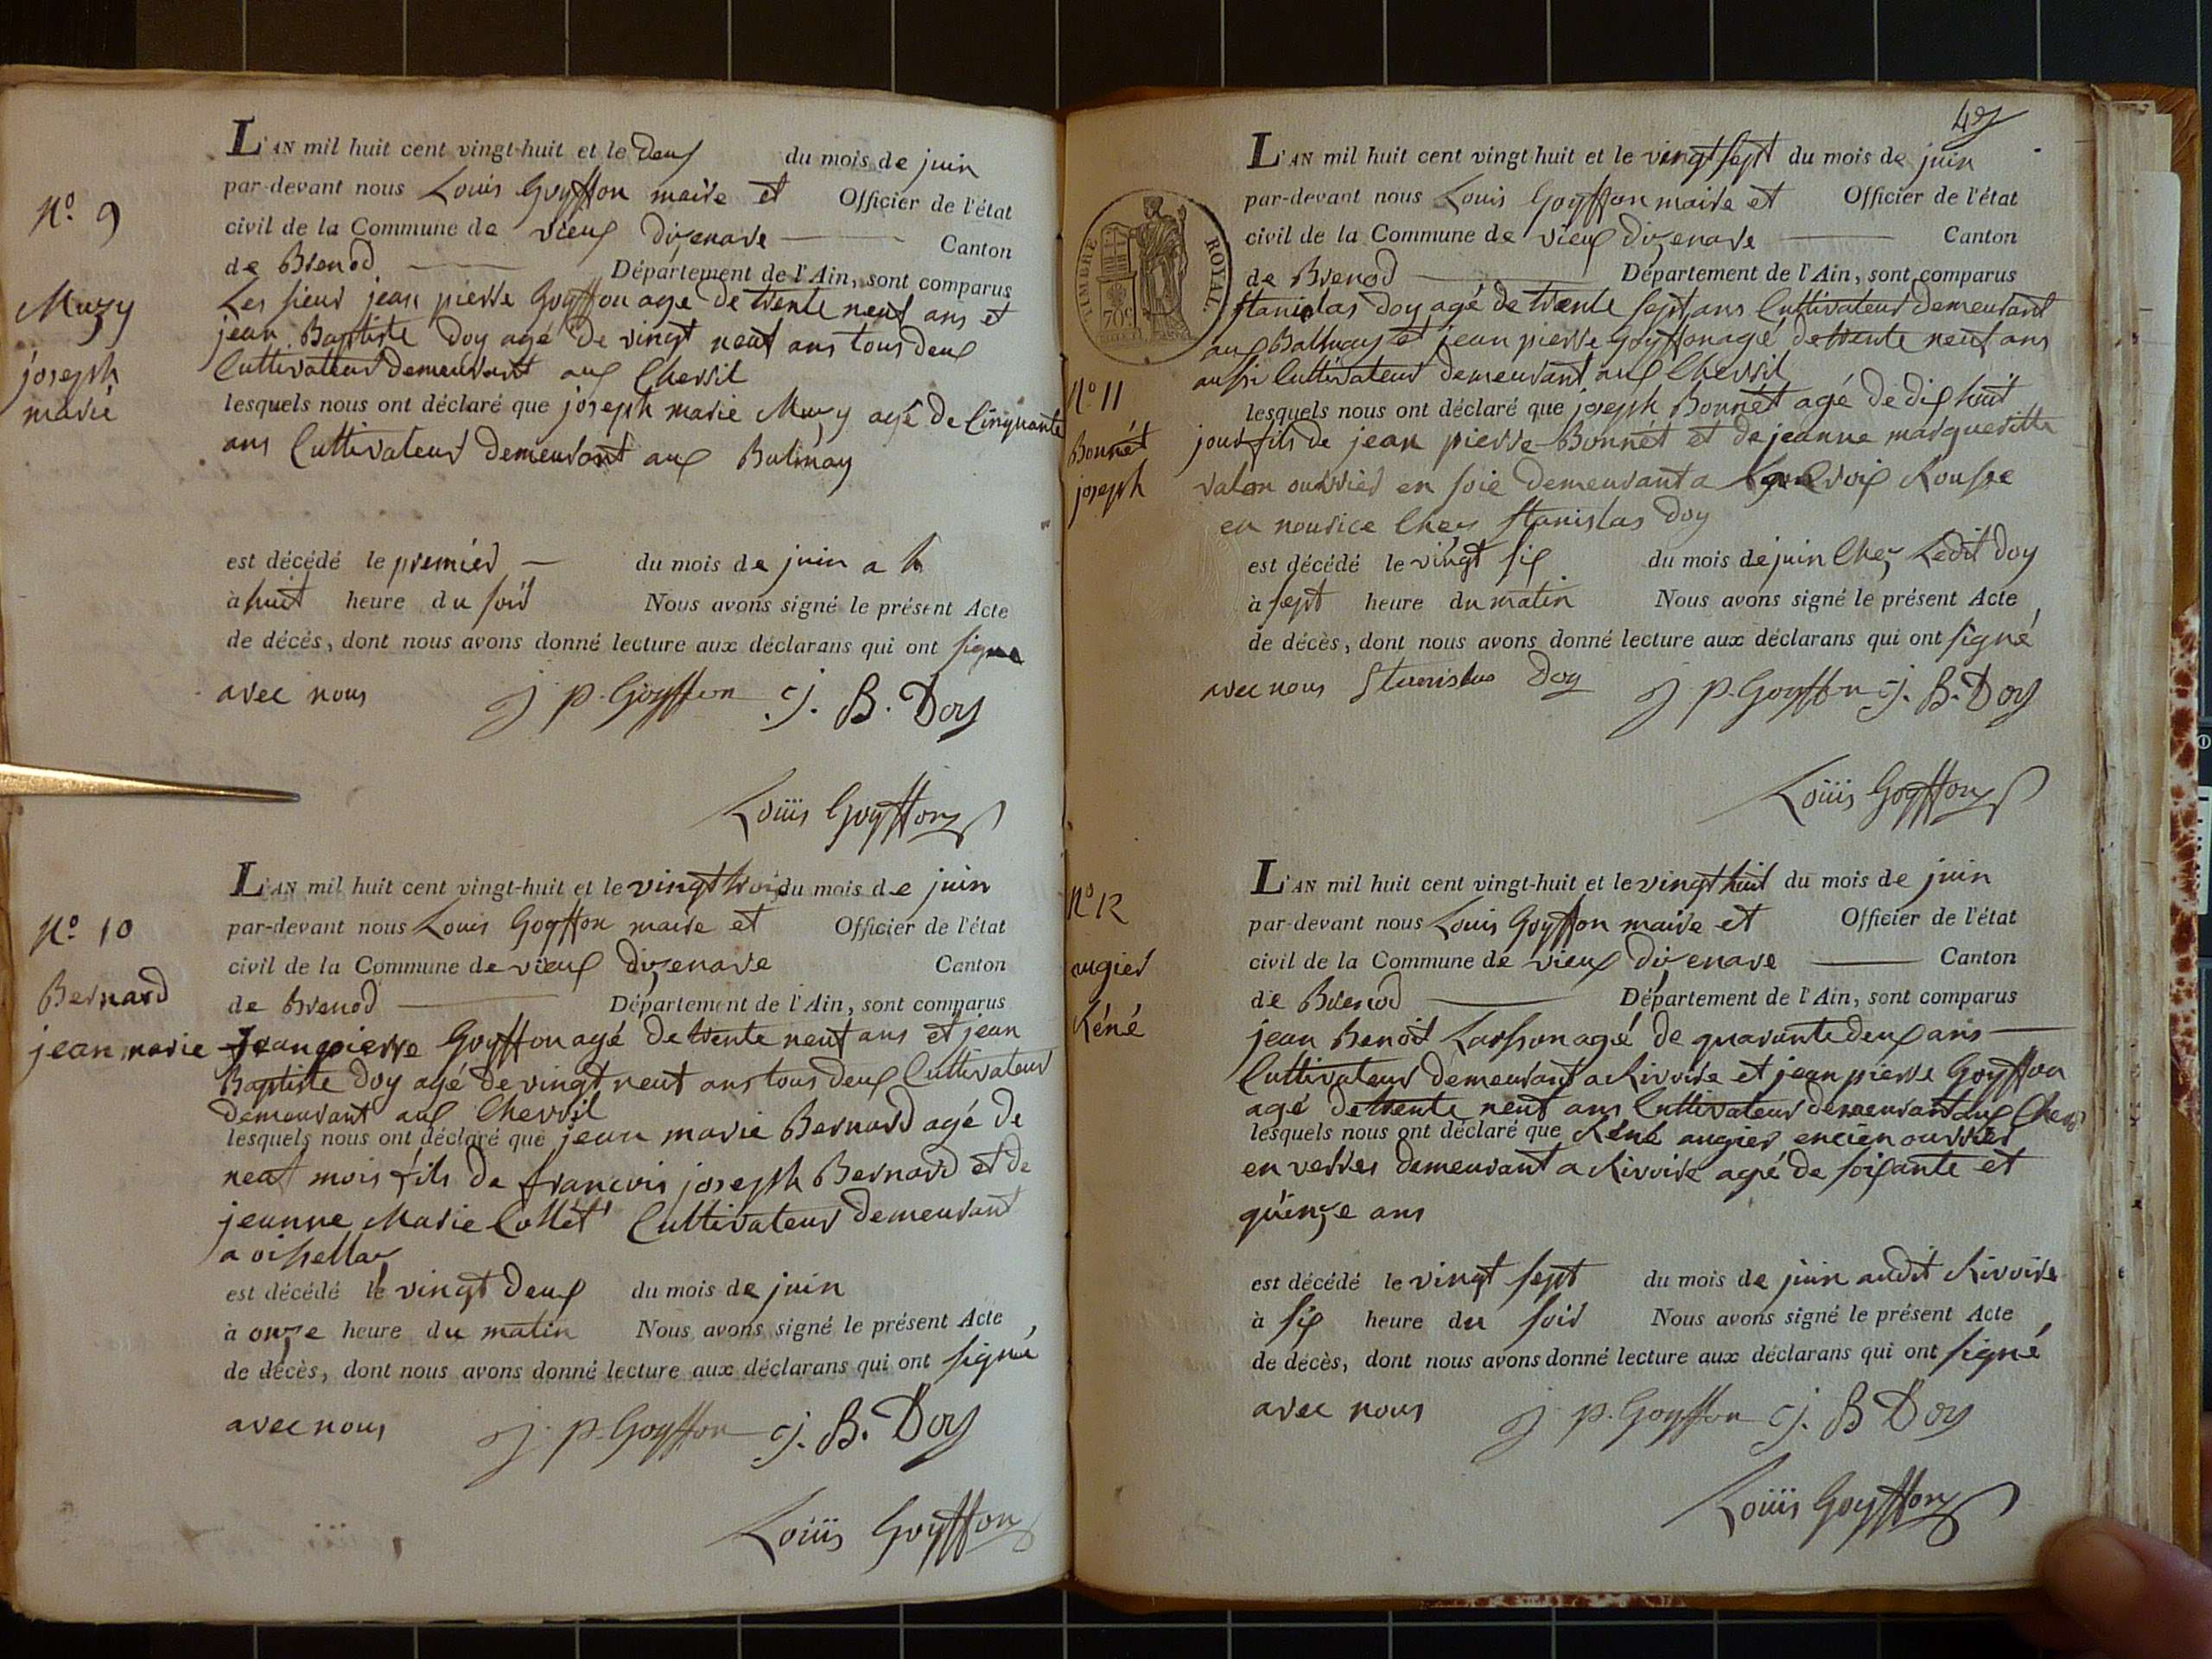 L'AN mil huit cent vingt-huit et le deux du mois de juin
par-devant nous Louis Goyffon maire et Officier de l'état
civil de la Commune de vieux dizenave Canton
de Brenod Département de l'Ain, sont comparus
Les sieur jean pierre Goyffon age de trente neuf ans et
jean Baptiste Doy agé de vingt neuf ans tous deux
Cultivateur demeurant aux Chevril
lesquels nous ont déclaré que joseph marie Muzy agé de Cinquante
ans Cultivateur demeurant aux Balmay
est décédé le premier du mois de juin a h
à huit heure du soir Nous avons signé le présent Acte
de décès, dont nous avons donné lecture aux déclarans qui ont signe
avec nous j p. Goyffon j. B. Doy
Loüis Goyffon
No. 9
Muzy
joseph
marie
L'AN mil huit cent vingt-huit et le vingt trois du mois de juin
par-devant nous Louis Goyffon maire et Officier de l'état
civil de la Commune de vieux dizenave Canton
de Brenod Département de l'Ain, sont comparus
Jean pierre Goyffon agé de trente neuf ans et jean
Baptiste Doy agé de vingt neuf ans tous deux Cultivateur
demeurant aux Chevril
lesquels nous ont déclaré que jean marie Bernard agé de
neuf mois fils de francois joseph Bernard et de
jeanne Marie Collét Cultivateur demeurant
a oissellaz
est décédé le vingt deux du mois de juin
à onze heure du matin Nous avons signé le présent Acte
de décès, dont nous avons donné lecture aux déclarans qui ont signé
avec nous j p. Goyffon j. B. Doy
Loüis Goyffon
No. 10
Bernard
jean marie
L'AN mil huit cent vingt-huit et le vingt sept du mois de juin
par-devant nous Louis Goyffon maire et Officier de l'état
civil de la Commune de vieux dizenave Canton
de Brenod Département de l'Ain, sont comparus
Stanislas Doy agé de trente sept ans Cultivateur demeurant
aux Balmay et jean pierre Goyffon agé de trente neuf ans
aussi Cultivateur demeurant aux Chevril
lesquels nous ont déclaré que joseph Bonnét agé de dix huit
jour fils de jean pierre Bonnét et de jeanne margueritte
valon ouvrier en soie demeurant a Croix Rousse
en nourice Chez Stanislas Doy
est décédé le vingt six du mois de juin Chez Ledit Doy
à sept heure du matin Nous avons signé le présent Acte
de décès, dont nous avons donné lecture aux déclarans qui ont signé
avec nous Stanislas Doy j p. Goyffon j. B. Doy
Loüis Goyffon
TIMBRE ROYAL
70c
No 11
Bonnét
joseph
L'AN mil huit cent vingt-huit et le vingt huit du mois de juin
par-devant nous Louis Goyffon maire et Officier de l'état
civil de la Commune de vieux dizenave Canton
de Brenod Département de l'Ain, sont comparus
jean Benoit agé de quarante deux ans
Cultivateur demeurant a Rivoire et jean pierre Goyffon
agé de trente neuf ans Cultivateur demeurant aux
lesquels nous ont déclaré que Réné augier encien ouvrier
en verres demeurant a Rivoire agé de soixante et
quinze ans
est décédé le vingt sept du mois de juin audit Rivoire
à six heure du soir Nous avons signé le présent Acte
de décès, dont nous avons donné lecture aux déclarans qui ont signé
avec nous j p. Goyffon j. B Doy
Loüis Goyffon
No 12
augier
Réné